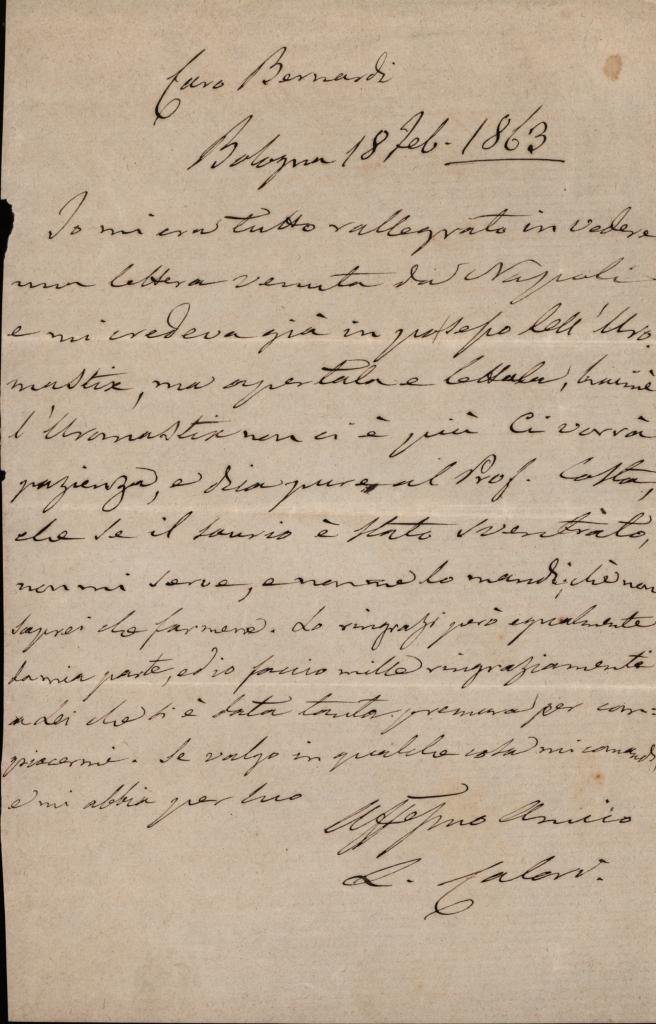 Caro Bernardi
Bologna 18 Feb. 1863
Io mi era tutto rallegrato in vedere
una lettera venuta da Napoli
e mi credeva già in possesso dell'Uro
mastix, ma apertala e lettala,
l'Uromastix non ci è più Ci vorrà
pazienza, e dica pure al Prof. Costa,
che se il saurio è stato sventrato,
non mi serve, e non me lo mandi, chè non
saprei che farmene. Lo ringrazi però egualmente
da mia parte, ed io faccio mille ringraziamenti
a Lei che si è data tanta premura per com=
piacermi. Se valgo in qualche cosa mi comandi,
e mi abbia per suo
Affessmo Amico
L. Calori.